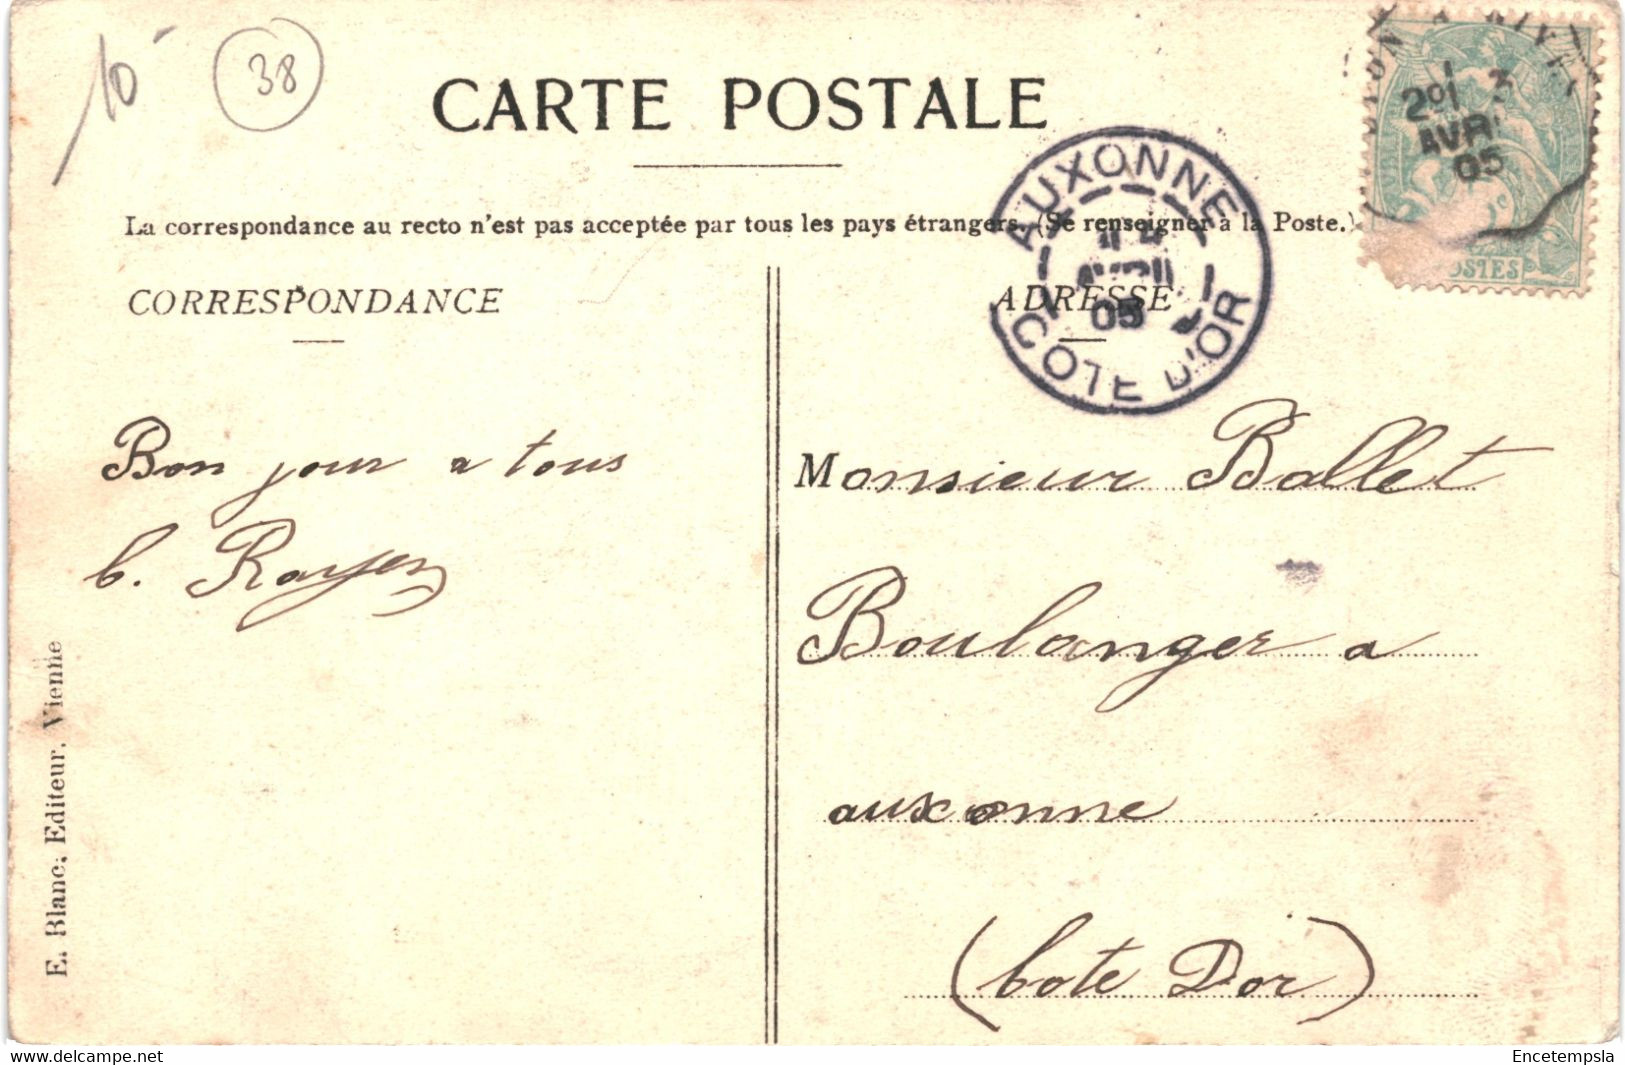 10
38
CARTE POSTALE
La correspondance au recto n'est pas acceptée par tous les pays étrangers. (Se renseigner à la Poste.)
CORRESPONDANCE
ADRESSE
AUXONNE
AVRIL
05
COTE D'OR
2º/ 3
AVR
05
OSTES
Bon jour a tous
C. Royer
Monsieur Ballet
Boulanger a
auxonne
(Cote D'or)
E. Blanc, Editeur, Vienne
Encetempsla